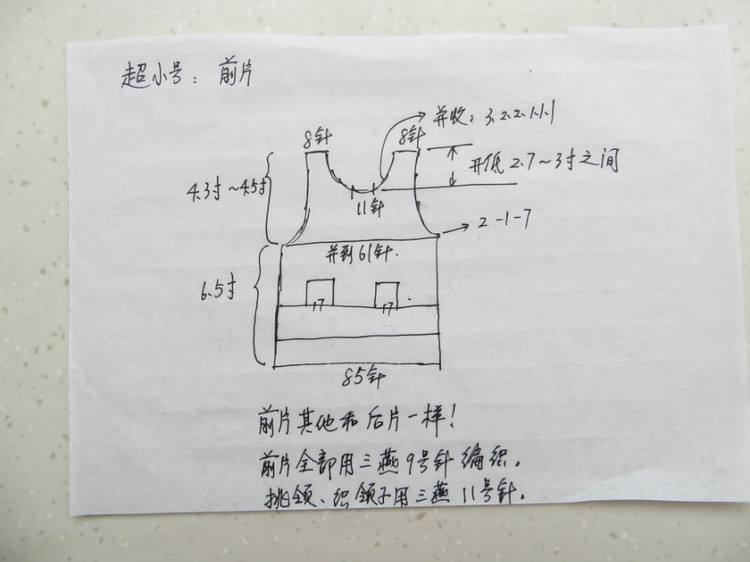 超小号：前片
并收：3.2.2.1.1.1
8针 8针
开低2.7～3寸之间
4.3寸～4.5寸
11针
2-1-7
并到61针.
6.5寸
17 17
85针
前片其他和后片一样！
前片全部用三燕9号针编织。
挑领、织领子用三燕11号针。